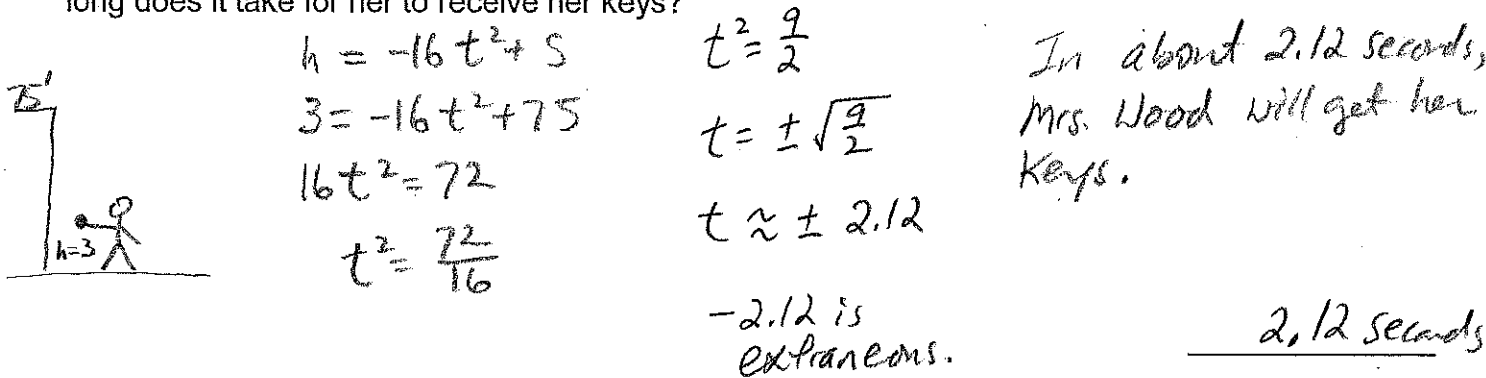 long does it take for her to receive her keys?
75'
h=3
h = -16t²+ S
3 = -16t²+75
16t²=72
t²= 72/16
t²= 9/2
t= ±√(9/2)
t ≈ ± 2.12
-2.12 is
extraneous.
In about 2.12 seconds,
Mrs. Wood will get her
Keys.
2.12 seconds